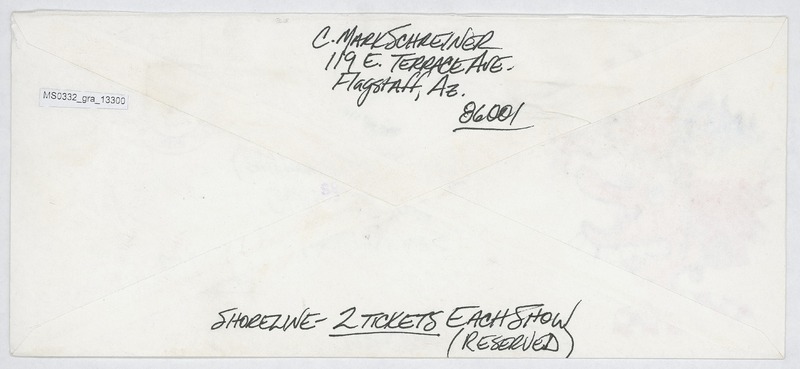 C. Mark Schreiner
119 E. Terrace Ave.
Flagstaff, Az.
86001
MS0332_gra_13300
Shoreline - 2 Tickets Each Show
(Reserved)